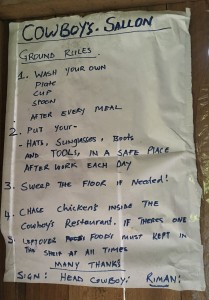 COWBOY'S. SALLON
GROUND RULES.
1. WASH YOUR OWN
PLATE
CUP
SPOON
AFTER EVERY MEAL
2. PUT YOUR-
- HATS, SUNGLASSES, BOOTS
AND TOOLS, IN A SAFE PLACE
AFTER WORK EACH DAY
3. SWEEP THE FLOOR IF NEEDED!
4. CHASE CHICKENS INSIDE THE
COWBOY'S RESTAURANT. IF THERES ONE
5. LEFTOVER FOODS MUST KEPT IN
THE SHELF AT ALL TIMES
MANY THANKS
SIGN: HEAD COWBOY: RIMAN: